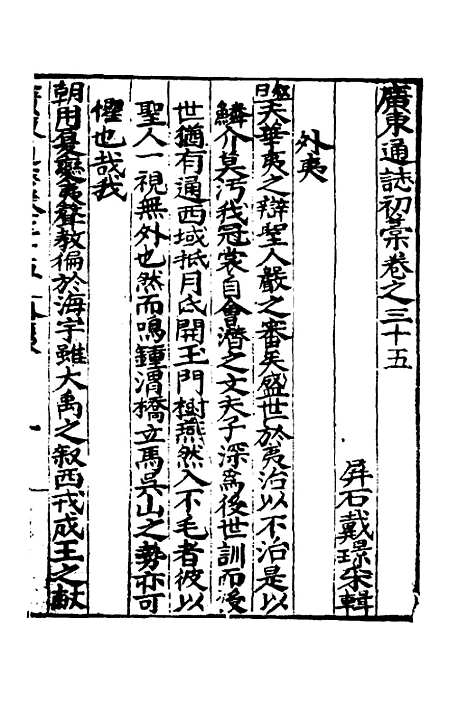 廣東通誌初藁卷之三十五
屏石戴璟采輯
外夷
曰天華夷之辯聖人嚴之審矣盛世於夷治以不治是以
鱗介莫汚我冠裳自會濳之文天子深爲後世訓而後
世猶有通西域抵月氐開玉門樹燕然入不毛者彼以
聖人一視無外也然而鳴鍾渭橋立馬吳山之勢亦可
懼也哉我
朝用夏變夷聲教徧於海宇雖大禹之叙西戎成王之獻